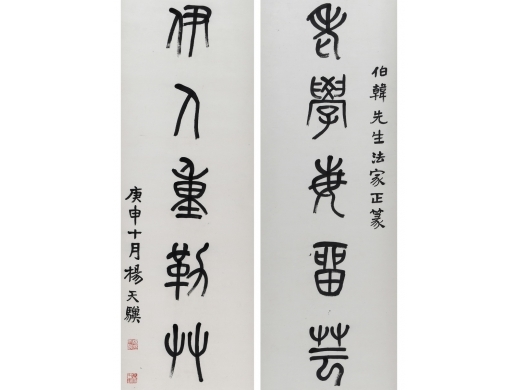 老學每留芸
伯韓先生法家正篆
伊人重勒艸
庚申十月楊天驥